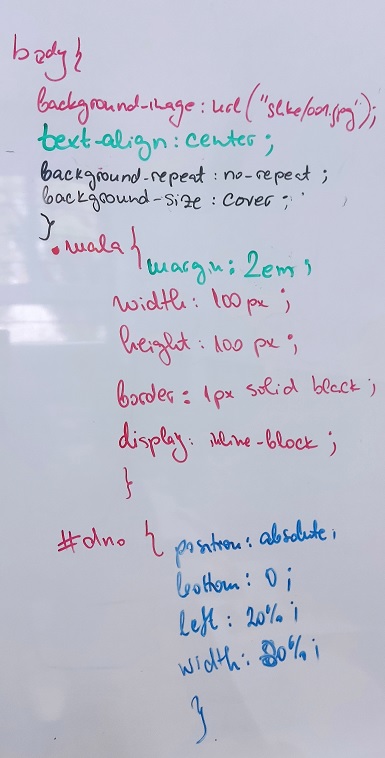 body {
background-image: url("slike/001.jpg");
text-align: center;
background-repeat: no-repeat;
background-size: cover;
}
.mala {
margin: 2em;
width: 100 px;
height: 100 px;
border: 1px solid black;
display: inline-block;
}
#dno { position: absolute;
bottom: 0;
left: 20%;
width: 80%;
}